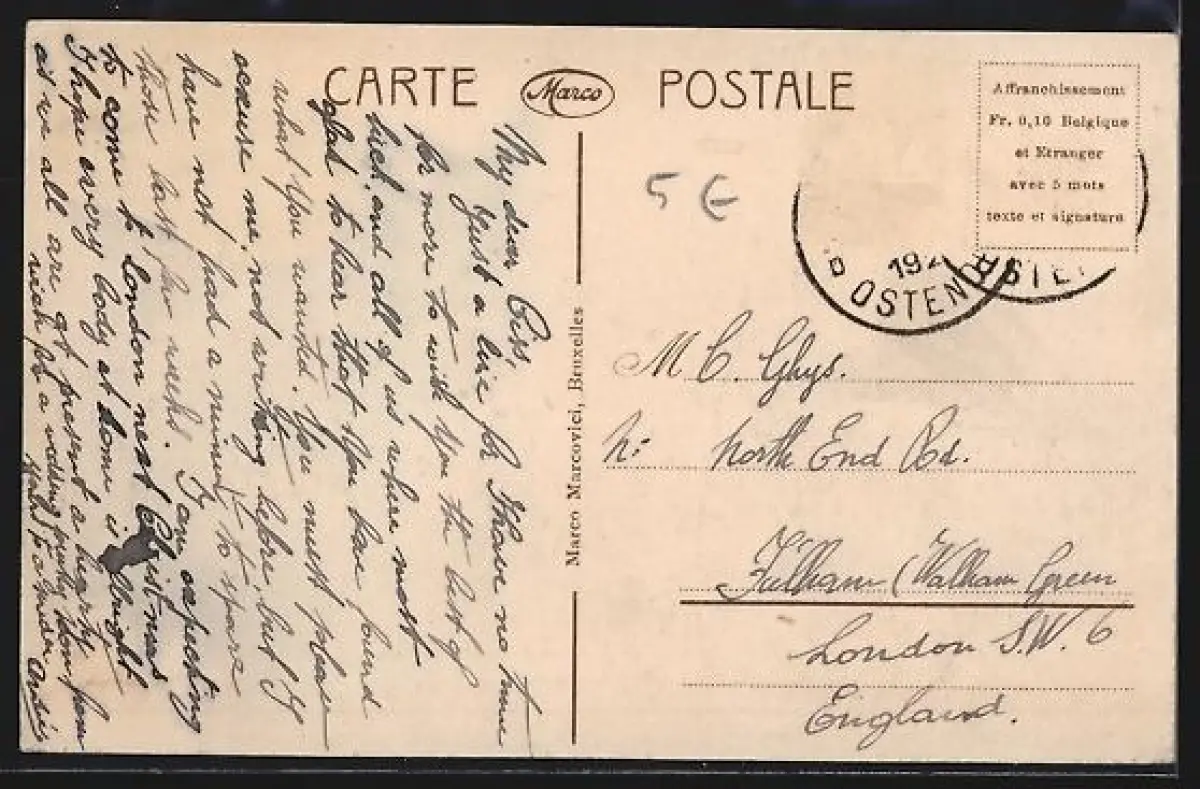 CARTE Marco POSTALE
Affranchissement
Fr. 0,10 Belgique
et Etranger
avec 5 mots
texte et signature
5 €
192
OSTEN
STE
Marco Marcovici, Bruxelles
M C. Ghys.
North End Rd.
Fulham (Walham Green
London S.W. 6
England.
My dear Cis,
Just a line for I have no time
for more to wish you the best of
luck and all of us where most
glad to hear that you have found
what you wanted. You must please
excuse me, not writing before, but I
have not had a minute to spare
those last few weeks. I am expecting
to come to London next Christmas
I hope every body at home is allright
as we all are at present a hearty
wish for a wedding party from